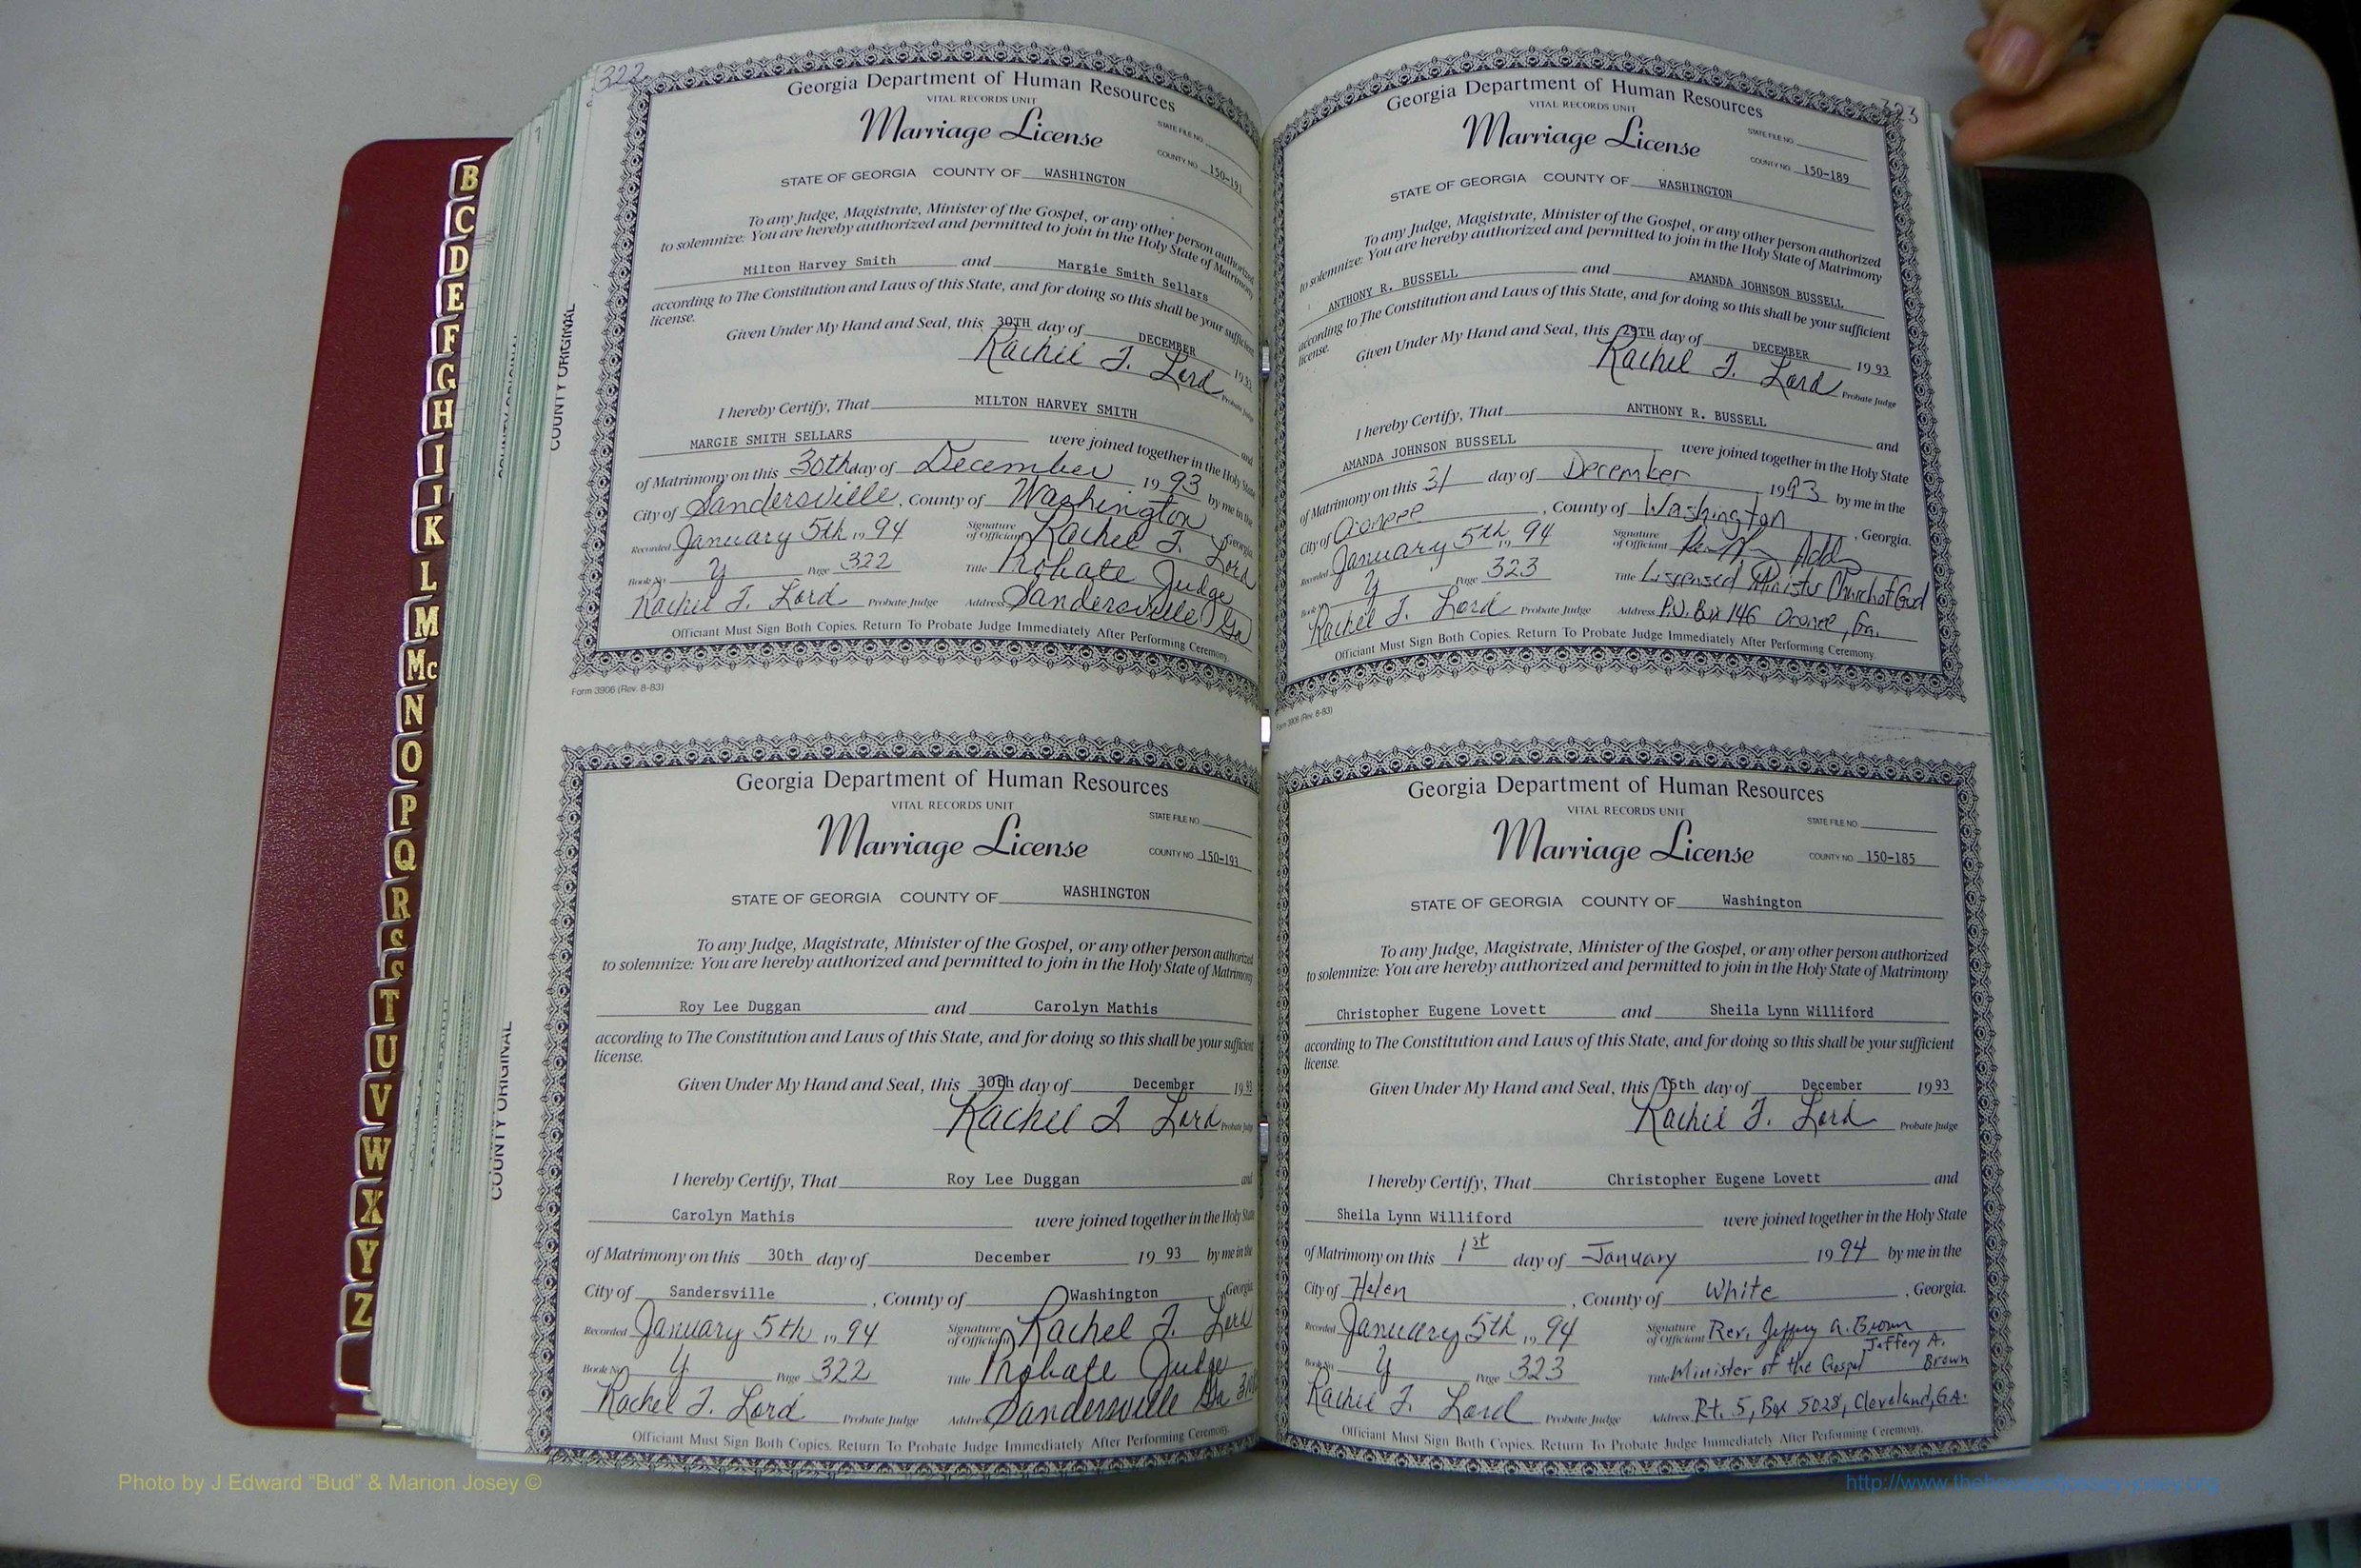 322
Georgia Department of Human Resources
VITAL RECORDS UNIT
Marriage License
STATE FILE NO.
COUNTY NO. 150-191
STATE OF GEORGIA COUNTY OF WASHINGTON
To any Judge, Magistrate, Minister of the Gospel, or any other person authorized
to solemnize: You are hereby authorized and permitted to join in the Holy State of Matrimony
Milton Harvey Smith and Margie Smith Sellars
according to The Constitution and Laws of this State, and for doing so this shall be your sufficient
license.
Given Under My Hand and Seal, this 30TH day of DECEMBER 1993
Rachel J. Lord Probate Judge
I hereby Certify, That MILTON HARVEY SMITH and
MARGIE SMITH SELLARS were joined together in the Holy State
of Matrimony on this 30th day of December 1993 by me in the
City of Sandersville, County of Washington Georgia
Recorded January 5th 1994 Signature of Officiant Rachel J. Lord
Book No. Y Page 322 Title Probate Judge
Rachel J. Lord Probate Judge Address Sandersville, Ga
Officiant Must Sign Both Copies. Return To Probate Judge Immediately After Performing Ceremony.
Form 3906 (Rev. 8-83)
COUNTY ORIGINAL
Georgia Department of Human Resources
VITAL RECORDS UNIT
Marriage License
STATE FILE NO.
COUNTY NO. 150-193
STATE OF GEORGIA COUNTY OF WASHINGTON
To any Judge, Magistrate, Minister of the Gospel, or any other person authorized
to solemnize: You are hereby authorized and permitted to join in the Holy State of Matrimony
Roy Lee Duggan and Carolyn Mathis
according to The Constitution and Laws of this State, and for doing so this shall be your sufficient
license.
Given Under My Hand and Seal, this 30th day of December 1993
Rachel J. Lord Probate Judge
I hereby Certify, That Roy Lee Duggan and
Carolyn Mathis were joined together in the Holy State
of Matrimony on this 30th day of December 1993 by me in the
City of Sandersville, County of Washington Georgia
Recorded January 5th 1994 Signature of Officiant Rachel J. Lord
Book No. Y Page 322 Title Probate Judge
Rachel J. Lord Probate Judge Address Sandersville Ga
Officiant Must Sign Both Copies. Return To Probate Judge Immediately After Performing Ceremony.
COUNTY ORIGINAL
323
Georgia Department of Human Resources
VITAL RECORDS UNIT
Marriage License
STATE FILE NO.
COUNTY NO. 150-189
STATE OF GEORGIA COUNTY OF WASHINGTON
To any Judge, Magistrate, Minister of the Gospel, or any other person authorized
to solemnize: You are hereby authorized and permitted to join in the Holy State of Matrimony
ANTHONY R. BUSSELL and AMANDA JOHNSON BUSSELL
according to The Constitution and Laws of this State, and for doing so this shall be your sufficient
license.
Given Under My Hand and Seal, this 29TH day of DECEMBER 1993
Rachel J. Lord Probate Judge
I hereby Certify, That ANTHONY R. BUSSELL and
AMANDA JOHNSON BUSSELL were joined together in the Holy State
of Matrimony on this 31 day of December 1993 by me in the
City of Oconee, County of Washington, Georgia.
Recorded January 5th 1994 Signature of Officiant
Book No. Y Page 323 Title Lisensed Minister Church of God
Rachel J. Lord Probate Judge Address P.O. Box 146 Oconee, Ga.
Officiant Must Sign Both Copies. Return To Probate Judge Immediately After Performing Ceremony.
Form 3906 (Rev. 8-83)
Georgia Department of Human Resources
VITAL RECORDS UNIT
Marriage License
STATE FILE NO.
COUNTY NO. 150-185
STATE OF GEORGIA COUNTY OF Washington
To any Judge, Magistrate, Minister of the Gospel, or any other person authorized
to solemnize: You are hereby authorized and permitted to join in the Holy State of Matrimony
Christopher Eugene Lovett and Sheila Lynn Williford
according to The Constitution and Laws of this State, and for doing so this shall be your sufficient
license.
Given Under My Hand and Seal, this 15th day of December 1993
Rachel J. Lord Probate Judge
I hereby Certify, That Christopher Eugene Lovett and
Sheila Lynn Williford were joined together in the Holy State
of Matrimony on this 1st day of January 1994 by me in the
City of Helen, County of White, Georgia.
Recorded January 5th 1994 Signature of Officiant Rev. Jeffery A. Brown
Jeffery A. Brown
Book No. Y Page 323 Title Minister of the Gospel
Rachel J. Lord Probate Judge Address Rt. 5, Box 5028, Cleveland, GA.
Officiant Must Sign Both Copies. Return To Probate Judge Immediately After Performing Ceremony.
B
C
D
E
F
G
H
I
J
K
L
M
Mc
N
O
P
Q
R
S
S
T
U
V
W
X
Y
Z
Photo by J Edward “Bud” & Marion Josey ©
http://www.thehouseofjossey-josey.org